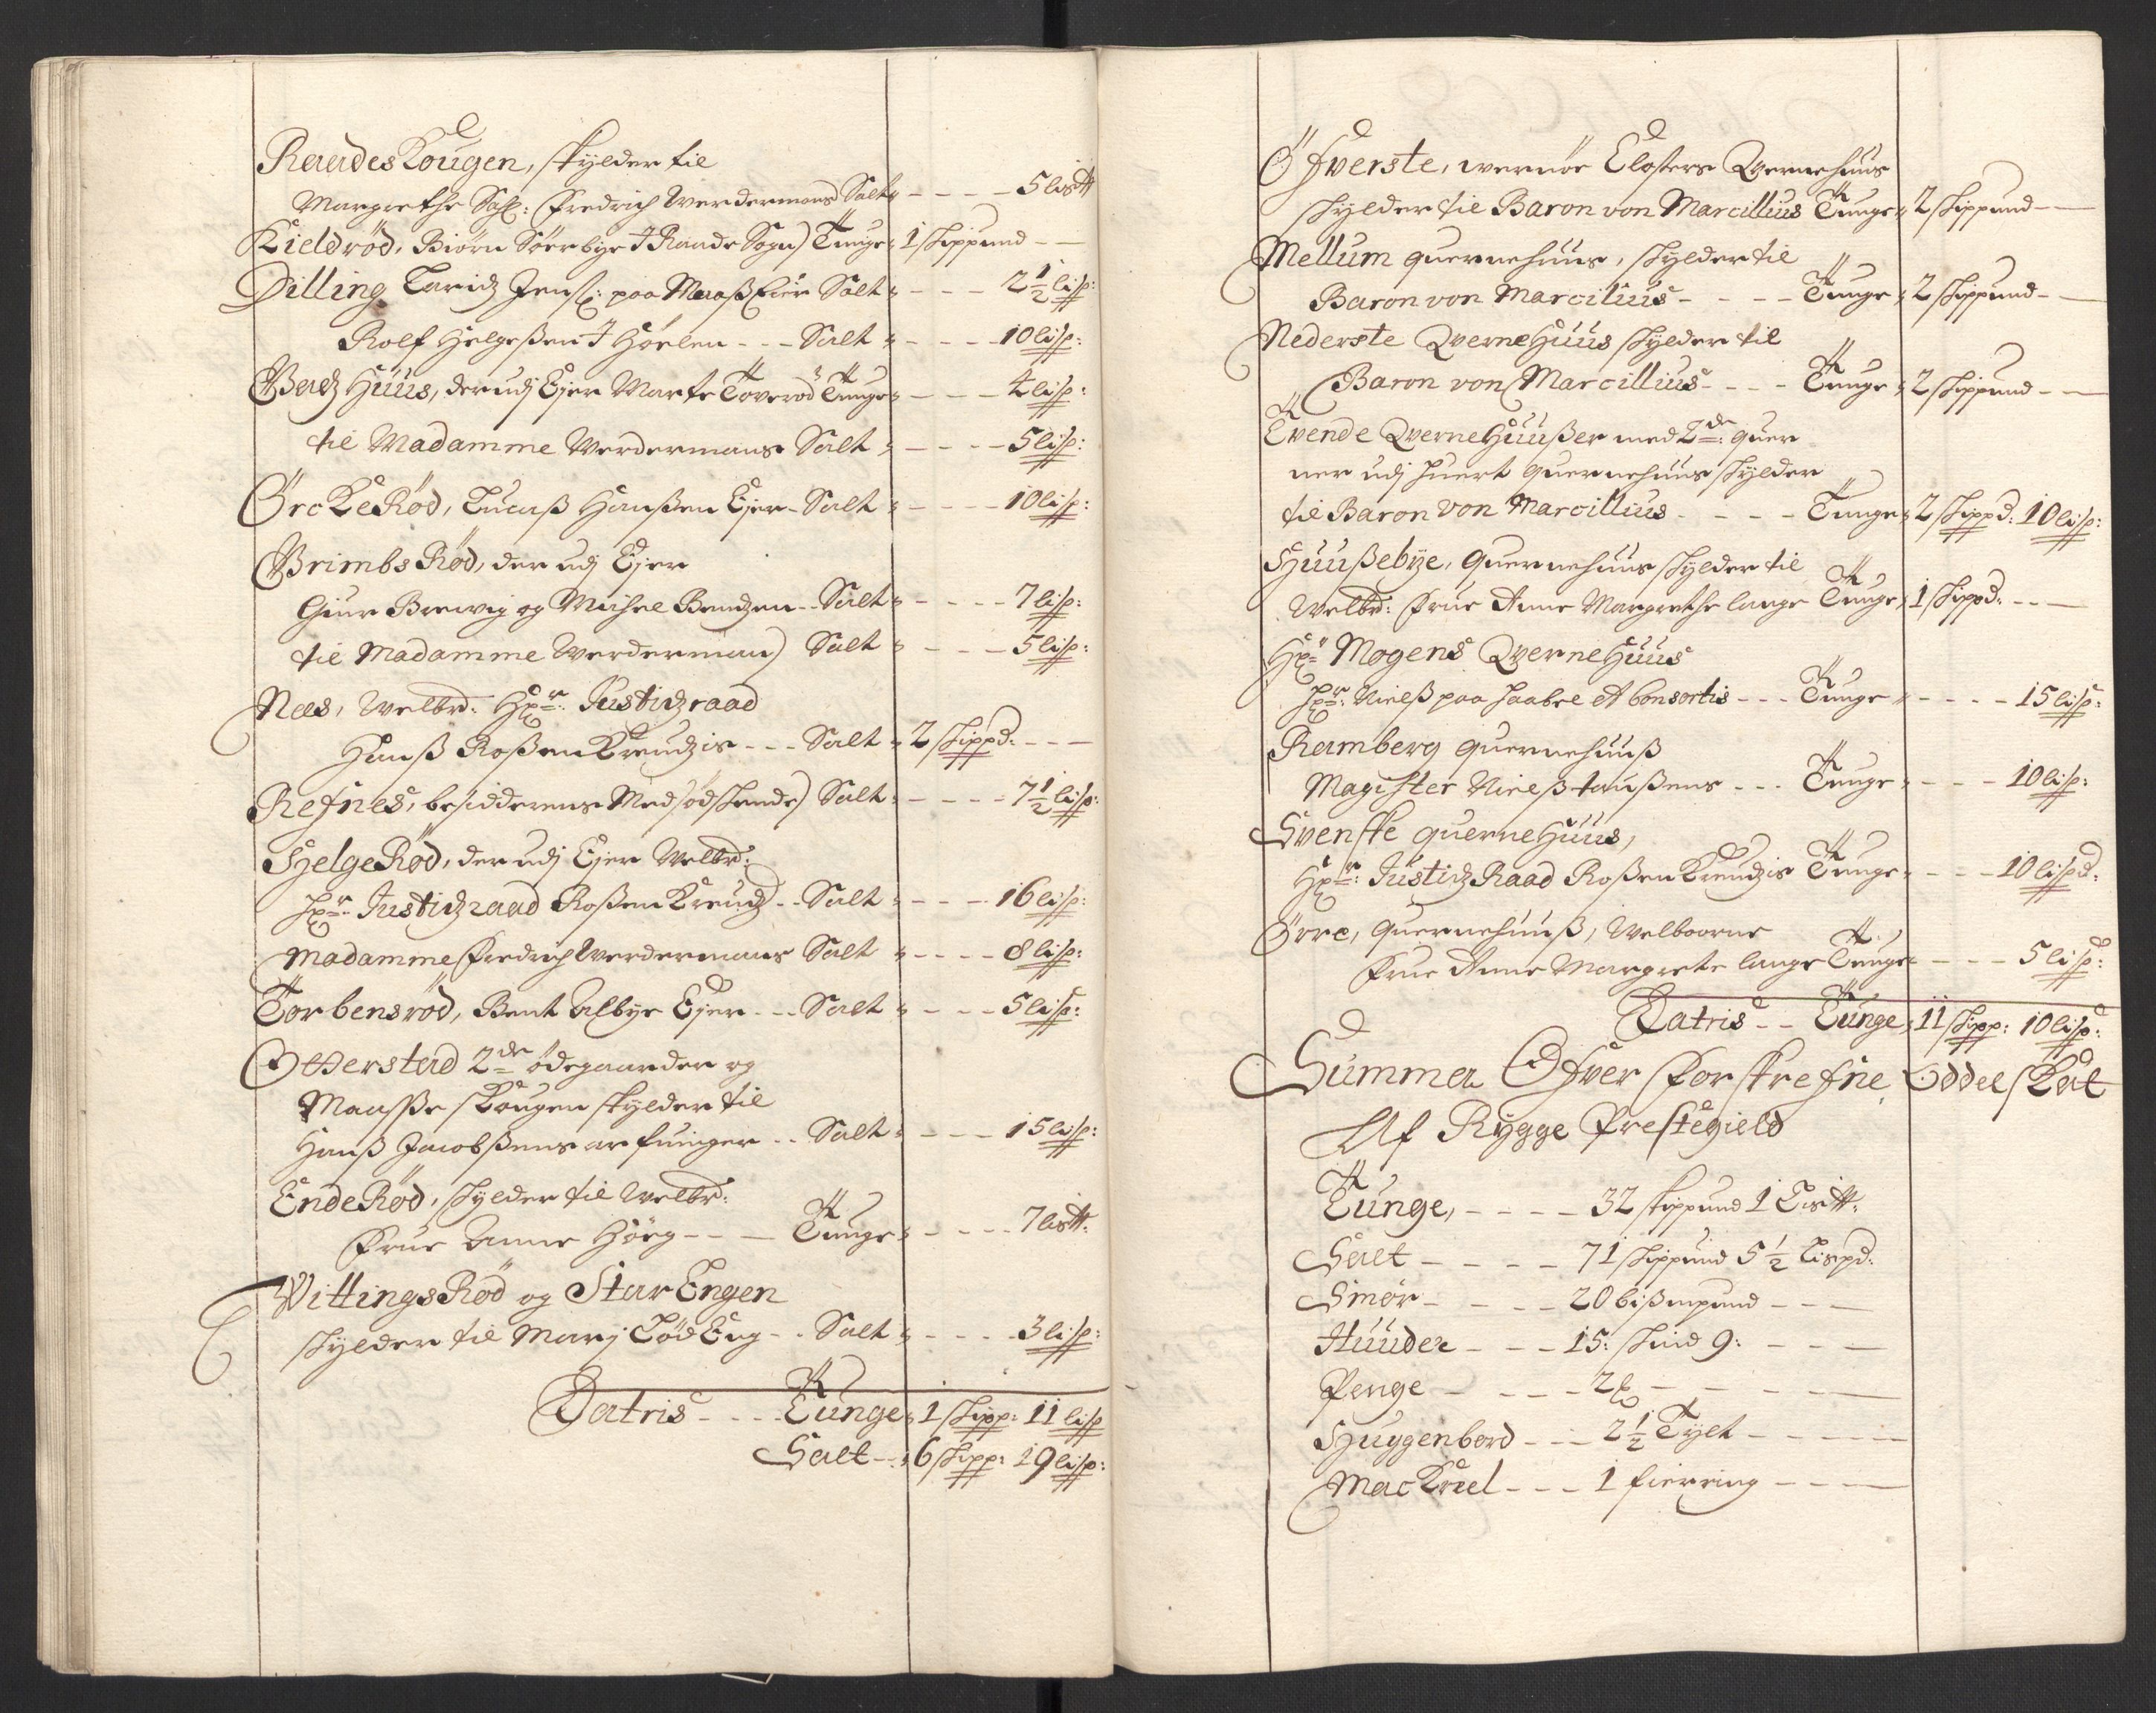 RaadesKougen, skylder til
Margrethe Sahl: Fredrich Werdermans Salt " - - - - 5 lis℔
Kieldrød, Biørn Sørbye I Raade Sogn) Tunge " 1 skippund - -
Dilling Laridz Jenß: paa Maaß Eier Salt " - - - 2½ lisp:
Rolf Helgeßen I Hoelen - - - Salt " - - - - 10 lisp:
Huus, der udj Ejer Marte Toverød Tunge " - - - - 4 lisp:
til Madamme Werdermans Salt " - - - - 5 lisp:
ØrckeRød, Lucaß Hanßen Ejer - Salt " - - - - 10 lisp:
BrimbsRød, der udj Ejer
Giur Brewig og Michel Bendzen - - Salt " - - - - 7 lisp:
til Madamme Werderman) Salt " - - - - 5 lisp:
Nes, Welbr. Hr: Justidzraad
Hanß RoßenKreudzis - - - Salt " 2 skippd: - - -
Refnes, besidderens Medsødskende) Salt " - - - - 7½ lisp:
HelgeRød, der udj Ejer Welbr:
Hr: Justidzraad RoßenKreudz - - Salt " - - - - 16 lisp:
Madamme Fredrich Werdermans Salt " - - - - 8 lisp:
Torbensrød, Bent Albye Ejer - - - Salt " - - - - 5 lisp:
Otterstad 2de ødegaarder og
Mansse skougen skylder til
Hanß Jacobßens arfuinger - - Salt " - - - - 15 lisp:
EndeRød, skylder til Welbr:
Frue Anne Høeg - - - Tunge " - - - - 7 lis℔:
WittingsRød og StarEngen
skylder til Marj LødEng - - Salt " - - - - 3 lisp:
Latris - - - - Tunge " 1 skipp: 11 lisp
Salt - - " 6 skipp: 19 lisp:
Øfwerste, wernøe Closters Qvernehuus
skylder til Baron von Marcillius Tunge " 2 skippund - -
Mellum quernehuus, skylder til
Baron von Marcilius - - - - Tunge " 2 skippund - -
Nederste QverneHuus skylder til
Baron von Marcillius - - - - Tunge " 2 skippund - -
Tvende QverneHuußer med 2de: quer
ner udj huert quernehuus skylder
til Baron von Marcillius - - - - Tunge " 2 skippd: 10 lisp:
Huußebye, quernehuus skylder til
Welbr: Frue Anne Margrethe lange Tunge " 1 skippd: - - -
Hr: Mogens QverneHuus
Hr: Nielß paa Haabel et Consortis - - - Tunge " - - - - 15 lisp:
Ramberg quernehuuß
Magister Nielß Haußens - - - Tunge " - - - - 10 lisp:
Svenske querneHuus,
Hr: JustidzRaad RoßenKreudzis Tunge " - - - 10 lispd:
Ørre, quernehuuß, Welboorne
Frue Anne Margrete lange Tunge " - - - 5 lisp:
Latris - - Tunge " 11 skipp: 10 lisp:
Summa Ofver forskrefne OddelsKat
Af Rygge Prestegield
Tunge, - - - - 32 skippund 1 Lis℔:
Salt - - - - 71 skippund 5½ Lispd:
Smør - - - - 20 bißmpund - - -
Huuder - - - 15: skind 9: - - -
Penge - - - - 2 - - - -
Huggenbord - - - 2½ Tylt - - - -
Mackreel - - - 1 fierring - - - -